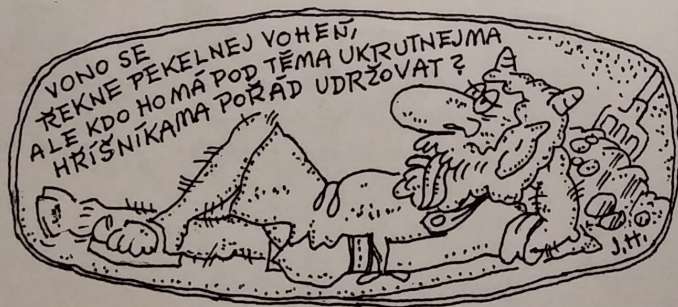 VONO SE
ŘEKNE PEKELNEJ VOHEŇ,
ALE KDO HO MÁ POD TĚMA UKRUTNEJMA
HŘÍŠNÍKAMA POŘÁD UDRŽOVAT?
J.H.